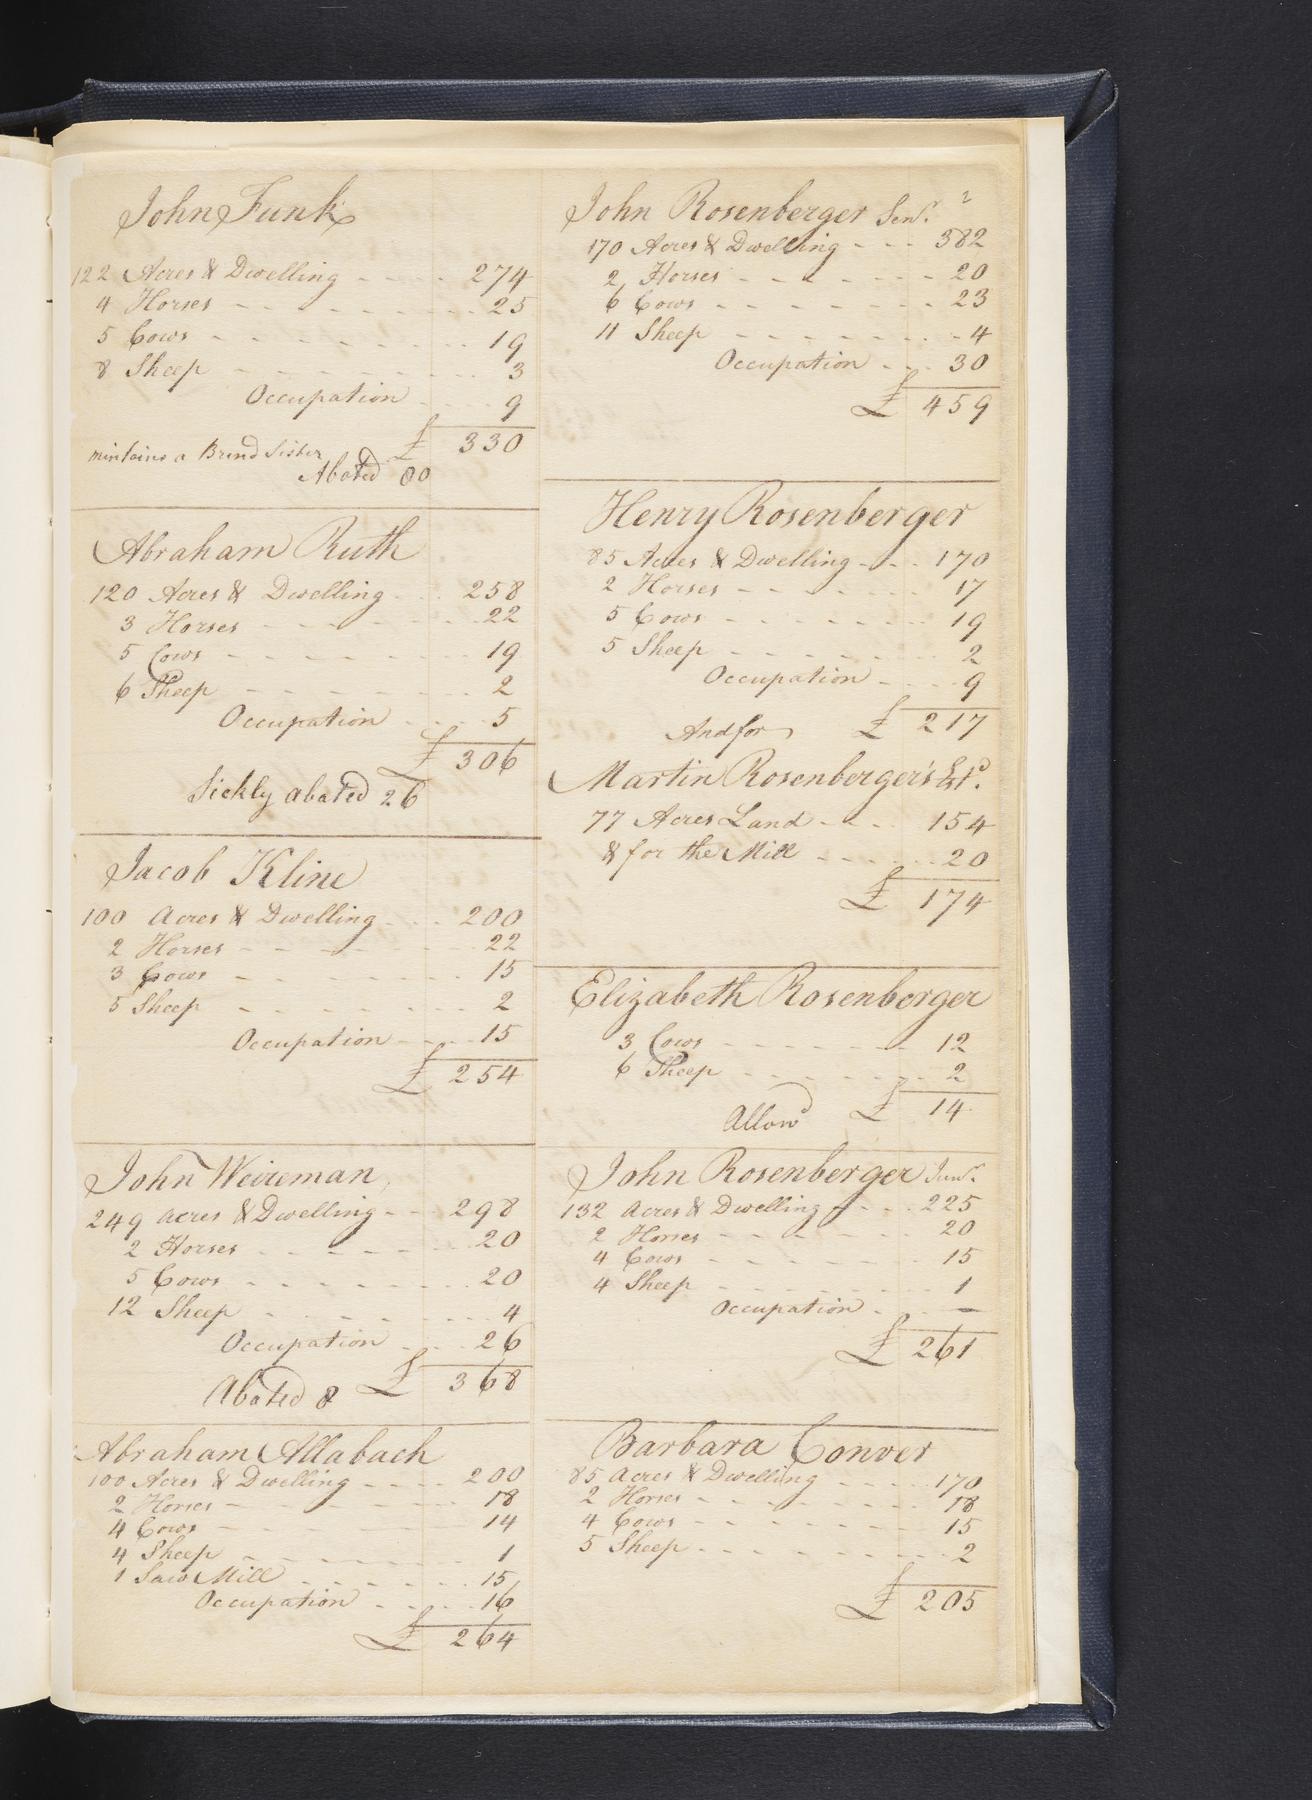 John Funk
122 Acres & Dwelling - - - - 274
4 Horses - - - - - - - 25
5 Cows - - - - - - - - 19
8 Sheep - - - - - - - 3
Occupation - - - - 9
£ 330
mintains a Brind Sister
Abated 80
Abraham Ruth
120 Acres & Dwelling - - - 258
3 Horses - - - - - - 22
5 Cows - - - - - - 19
6 Sheep - - - - - - 2
Occupation - - - - 5
£ 306
Sickly abated 26
Jacob Kline
100 Acres & Dwelling - - - 200
2 Horses - - - - - - 22
3 Cows - - - - - - 15
5 Sheep - - - - - - 2
Occupation - - - - 15
£ 254
John Weireman
249 acres & Dwelling - - - 298
2 Horses - - - - - - 20
5 Cows - - - - - - 20
12 Sheep - - - - - - 4
Occupation - - - - 26
£ 368
Abated 8
Abraham Allabach
100 Acres & Dwelling - - - - 200
2 Horses - - - - - - 18
4 Cows - - - - - - 14
4 Sheep - - - - - - 1
1 Saw Mill - - - - - - 15
Occupation - - - - 16
£ 264
2
John Rosenberger Senr.
170 Acres & Dwelling - - - 382
2 Horses - - - - - - 20
6 Cows - - - - - - 23
11 Sheep - - - - - - 4
Occupation - - - 30
£ 459
Henry Rosenberger
85 Acres & Dwelling - - - 170
2 Horses - - - - - - 17
5 Cows - - - - - - 19
5 Sheep - - - - - - 2
Occupation - - - - 9
£ 217
And for
Martin Rosenberger's Estd.
77 Acres Land - - - 154
& for the Mill - - - - - 20
£ 174
Elizabeth Rosenberger
3 Cows - - - - - - 12
6 Sheep - - - - - - 2
£ 14
Allowd
John Rosenberger Junr.
132 acres & Dwelling - - - 225
2 Horses - - - - - - 20
4 Cows - - - - - - 15
4 Sheep - - - - - - 1
Occupation - - —
£ 261
Barbara Conver
85 acres & Dwelling - - - - 170
2 Horses - - - - - - 18
4 Cows - - - - - - 15
5 Sheep - - - - - - 2
£ 205